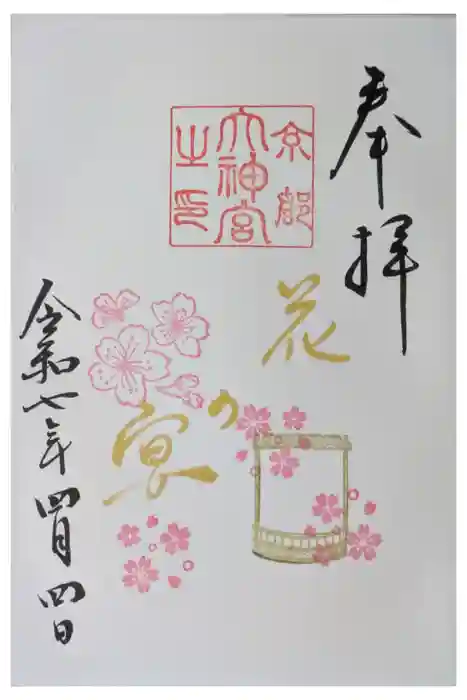 奉拝
京都
大神宮
之印
花の宴
令和七年四月四日